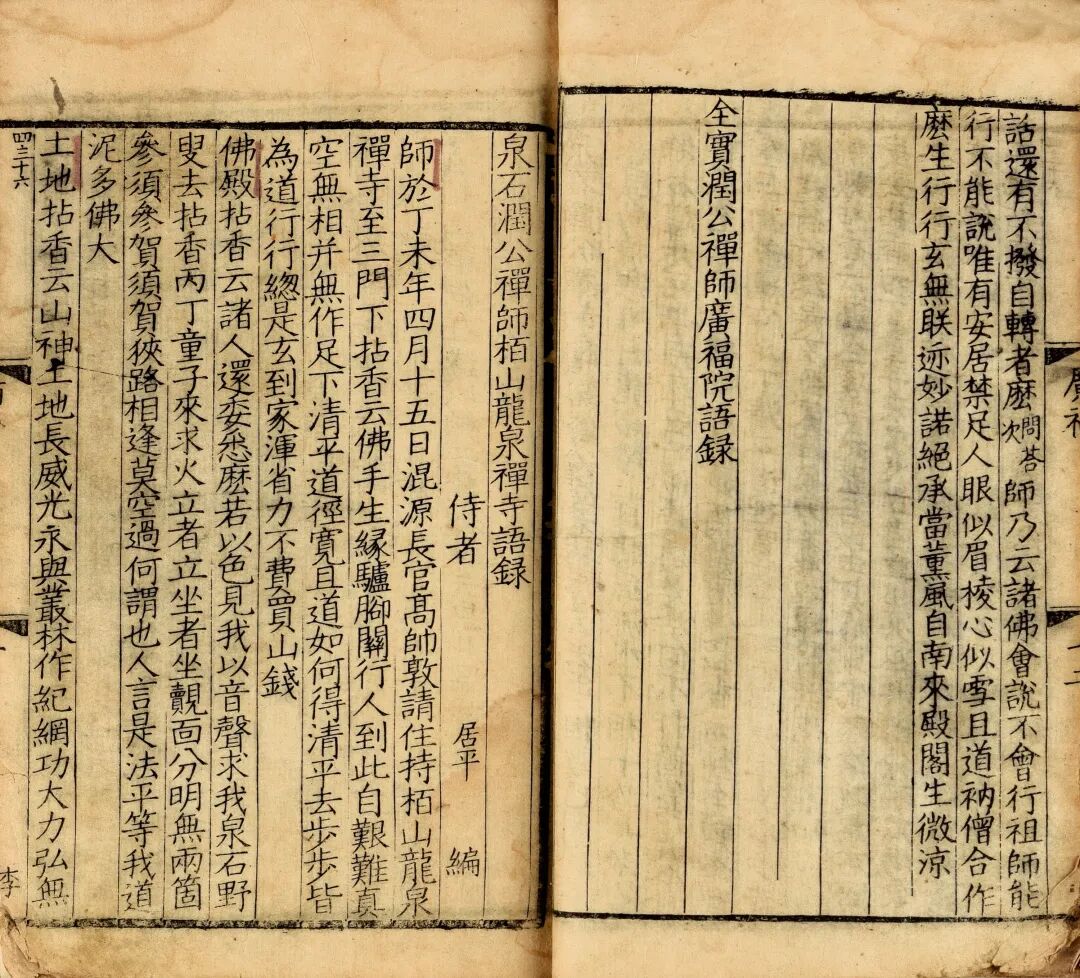 話還有不撥自轉者麽問荅不次師乃云諸佛會說不會行祖師能
行不能說唯有安居禁足人眼似眉棱心似雪且道衲僧合作
麽生行行玄無朕迹妙諾絕承當薰風自南來殿閣生微凉
全寶潤公禪師廣福院語録
泉石潤公禪師栢山龍泉禪寺語録
侍者 居平 編
師於丁未年四月十五日混源長官髙帥敦請住持栢山龍泉
禪寺至三門下拈香云佛手生縁驢腳關行人到此自艱難真
空無相并無作足下清平道徑寬且道如何得清平去步步皆
為道行行總是玄到家渾省力不費買山錢
佛殿拈香云諸人還委悉麽若以色見我以音聲求我泉石野
叟去拈香丙丁童子來求火立者立坐者坐覿面分明無兩箇
參須參賀須賀狹路相逢莫空過何謂也人言是法平等我道
泥多佛大
土地拈香云山神土地長威光永與叢林作紀綱功大力弘無
四三十六
李